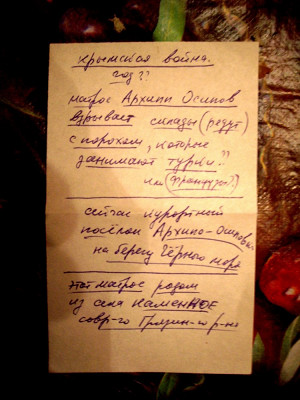 Крымская война.
год??
матрос Архипп Осипов
взрывает склады (редут)
с порохом, которые
занимают турки??
или (французы?)
сейчас курортный
посёлок Архипо-Осиповка
на берегу Чёрного моря
этот матрос родом
из села КаменНОЕ
совр-го Грязин-го р-на